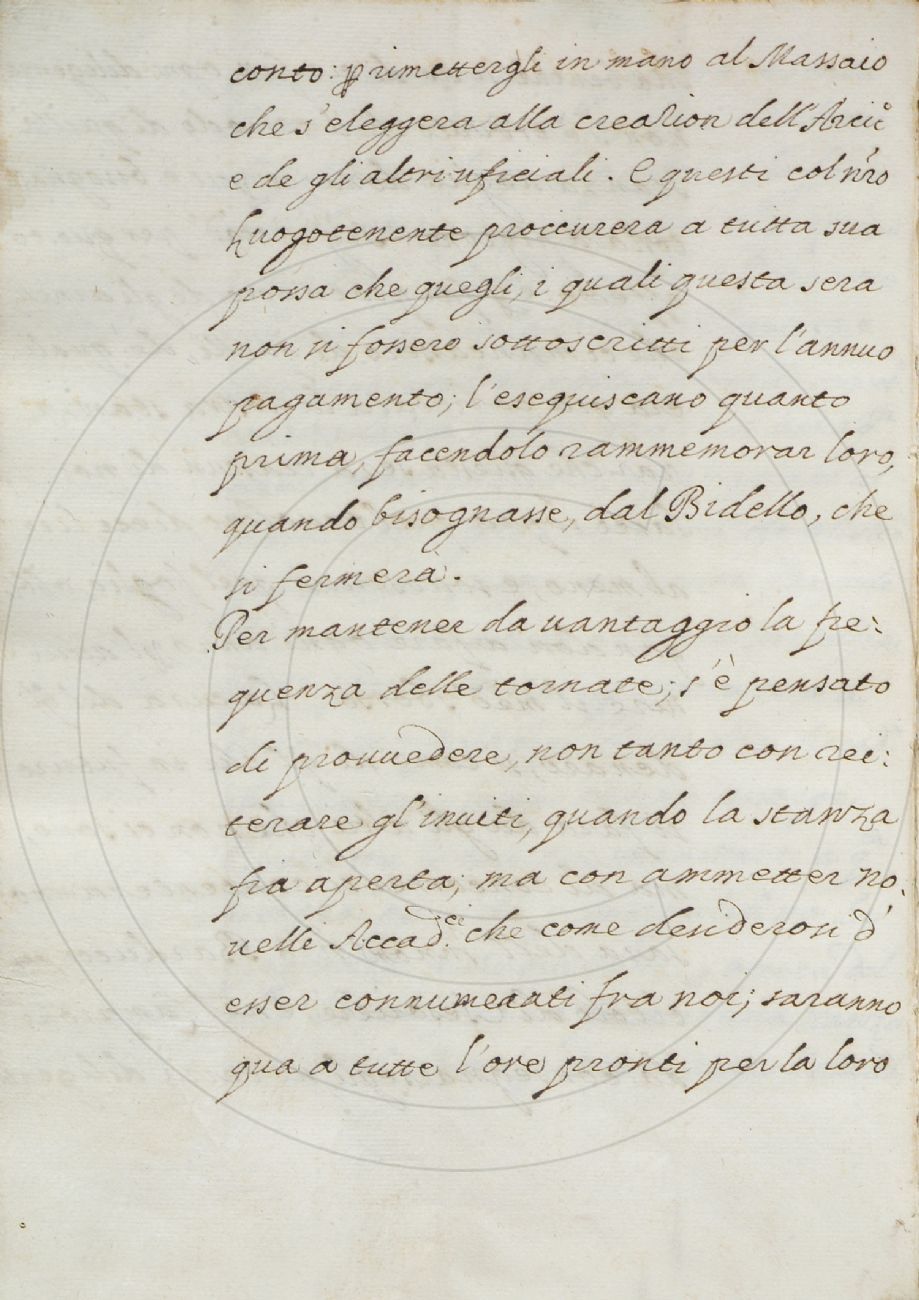 conto: p rimettergli in mano al Massaio
che s'eleggera alla creazion dell'Arcic.º
e de gli altri uficiali. E questi col nr̃o
Luogotenente proccurera a tutta sua
possa che quegli, i quali questa sera
non si fossero sottoscritti per l'annuo
pagamento; l'eseguiscano quanto
prima, facendolo rammemorar loro,
quando bisognasse, dal Bidello, che
si fermerà.
Per mantener da vantaggio la fre:
quenza delle tornate; s'è pensato
di provvedere, non tanto con rei:
terare gl'inviti, quando la stanza
fia aperta; ma con ammetter no:
velli Accad.ci che come desiderosi d'
esser connumerati fra noi; saranno
qua a tutte l'ore pronti per la loro